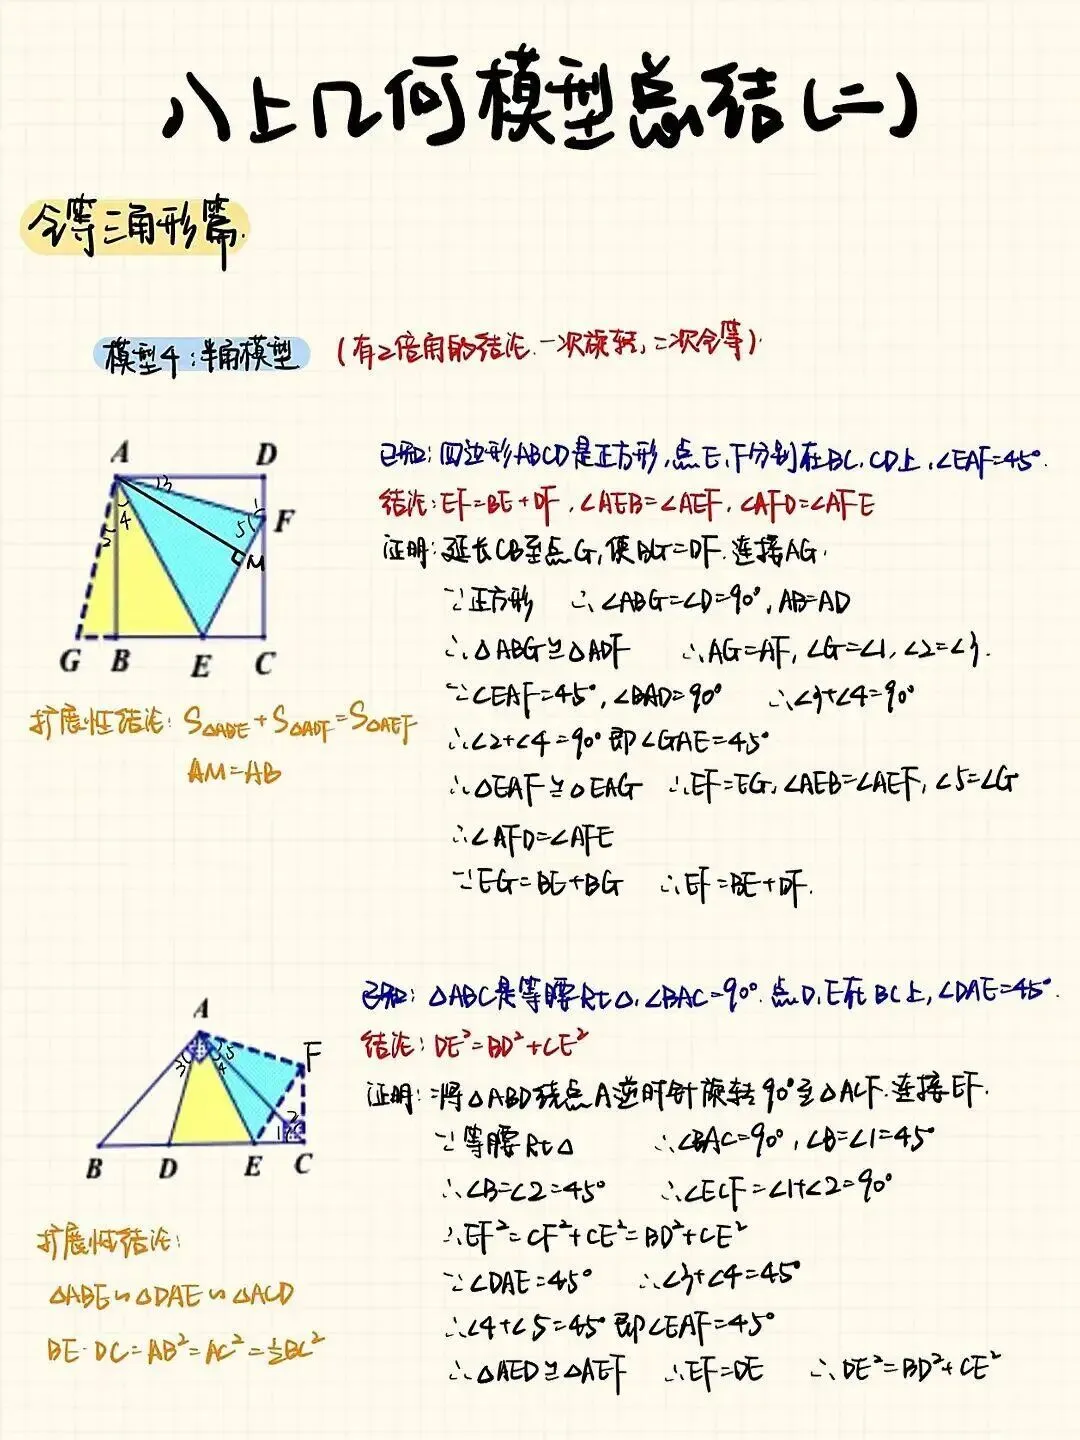 八上几何模型总结(二)
全等三角形篇.
模型4:半角模型 (有2倍角的结论.一次旋转,二次全等).
A D
13
4 2 5 1 F
M
G B E C
已知:四边形ABCD是正方形,点E、F分别在BC、CD上,∠EAF=45°.
结论:EF=BE+DF,∠AEB=∠AEF,∠AFD=∠AFE
证明:延长CB至点G,使BG=DF.连接AG.
∵正方形 ∴∠ABG=∠D=90°,AB=AD
∴△ABG≌△ADF ∴AG=AF,∠G=∠1,∠2=∠3.
∵∠EAF=45°,∠BAD=90° ∴∠3+∠4=90°
∴∠2+∠4=90°即∠GAE=45°
∴△EAF≌△EAG ∴EF=EG,∠AEB=∠AEF,∠5=∠G
∴∠AFD=∠AFE
∵EG=BE+BG ∴EF=BE+DF.
扩展性结论:S△ABE+S△ADF=S△AEF
AM=AB
A
3 4 5 F
1 2
B D E C
已知:△ABC是等腰Rt△,∠BAC=90°.点D、E在BC上,∠DAE=45°.
结论:DE²=BD²+CE²
证明:将△ABD绕点A逆时针旋转90°至△ACF.连接EF.
∵等腰Rt△ ∴∠BAC=90°,∠B=∠1=45°
∴∠B=∠2=45° ∴∠ECF=∠1+∠2=90°
∴EF²=CF²+CE²=BD²+CE²
∵∠DAE=45° ∴∠3+∠4=45°
∴∠4+∠5=45°即∠EAF=45°
∴△AED≌△AEF ∴EF=DE ∴DE²=BD²+CE²
扩展性结论:
△ABE∽△DAE∽△ACD
BE·DC=AB²=AC²=½BC²